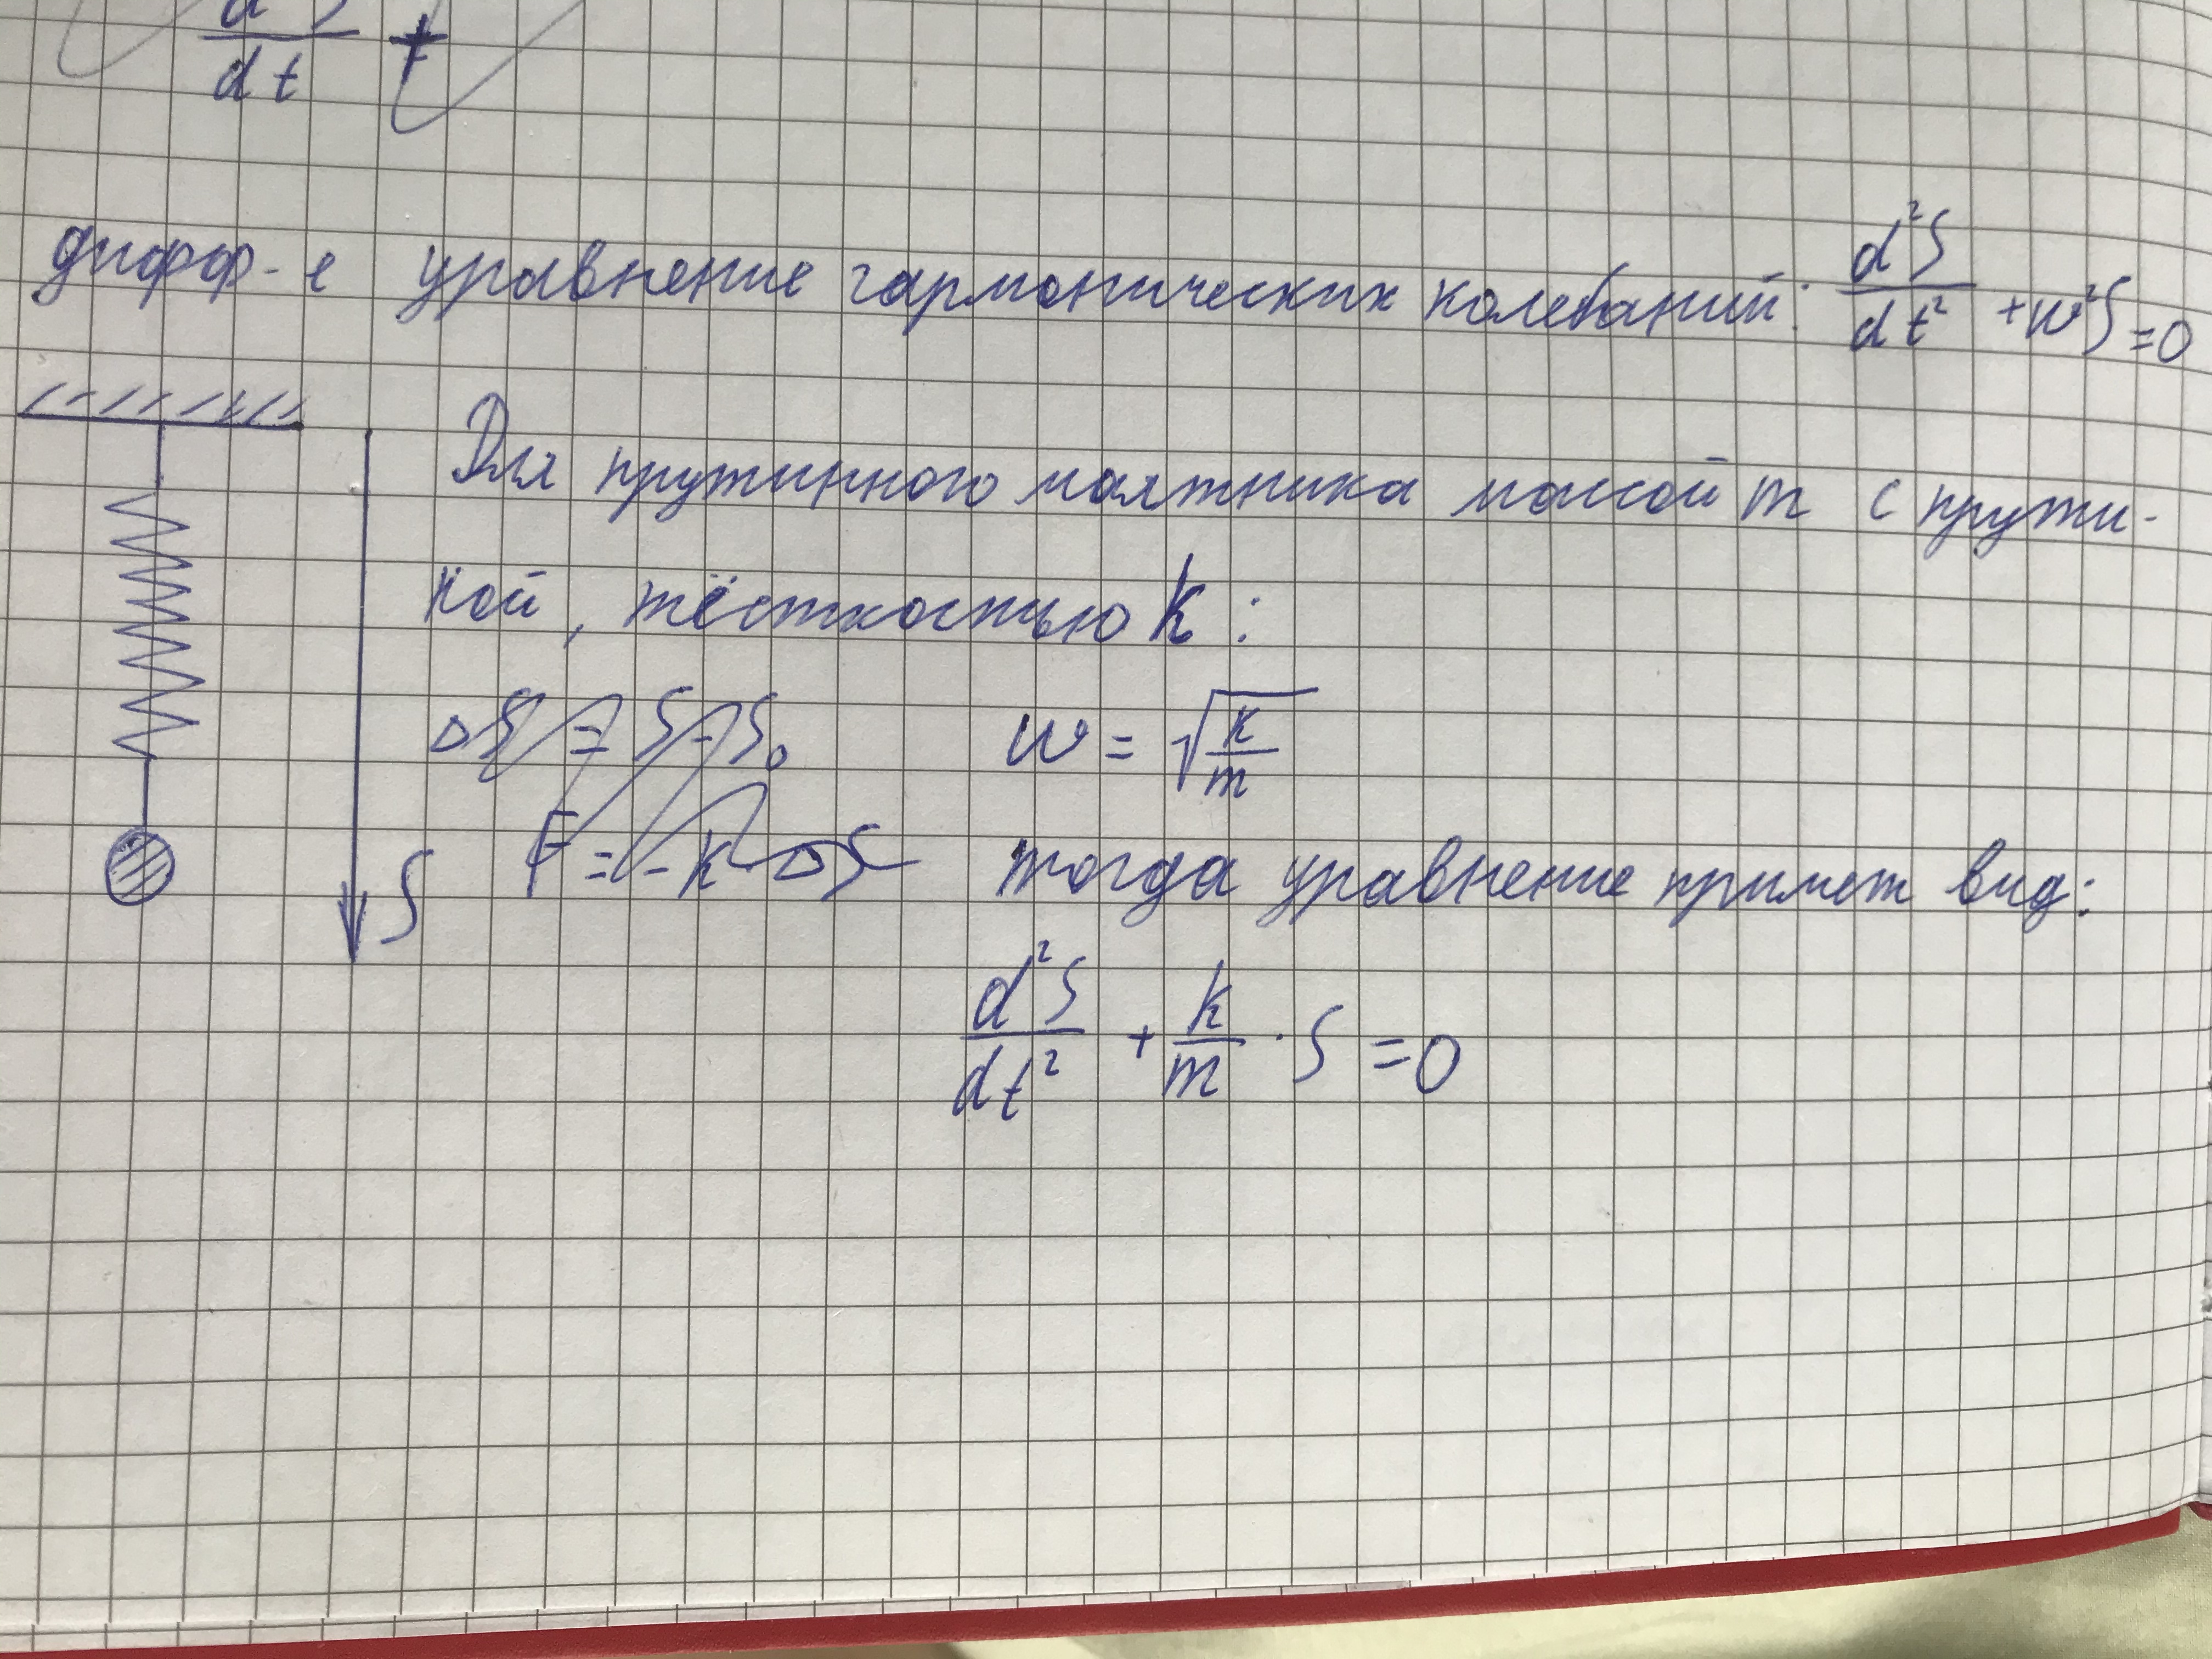 dS/dt +
дифф-е уравнение гармонических колебаний: d²S/dt² + w²S = 0
Для пружинного маятника массой m с пружи-
ной, жёсткостью k:
ΔS = S - S₀ w = √(k/m)
F = -k · ΔS тогда уравнение примет вид:
S
d²S/dt² + k/m · S = 0